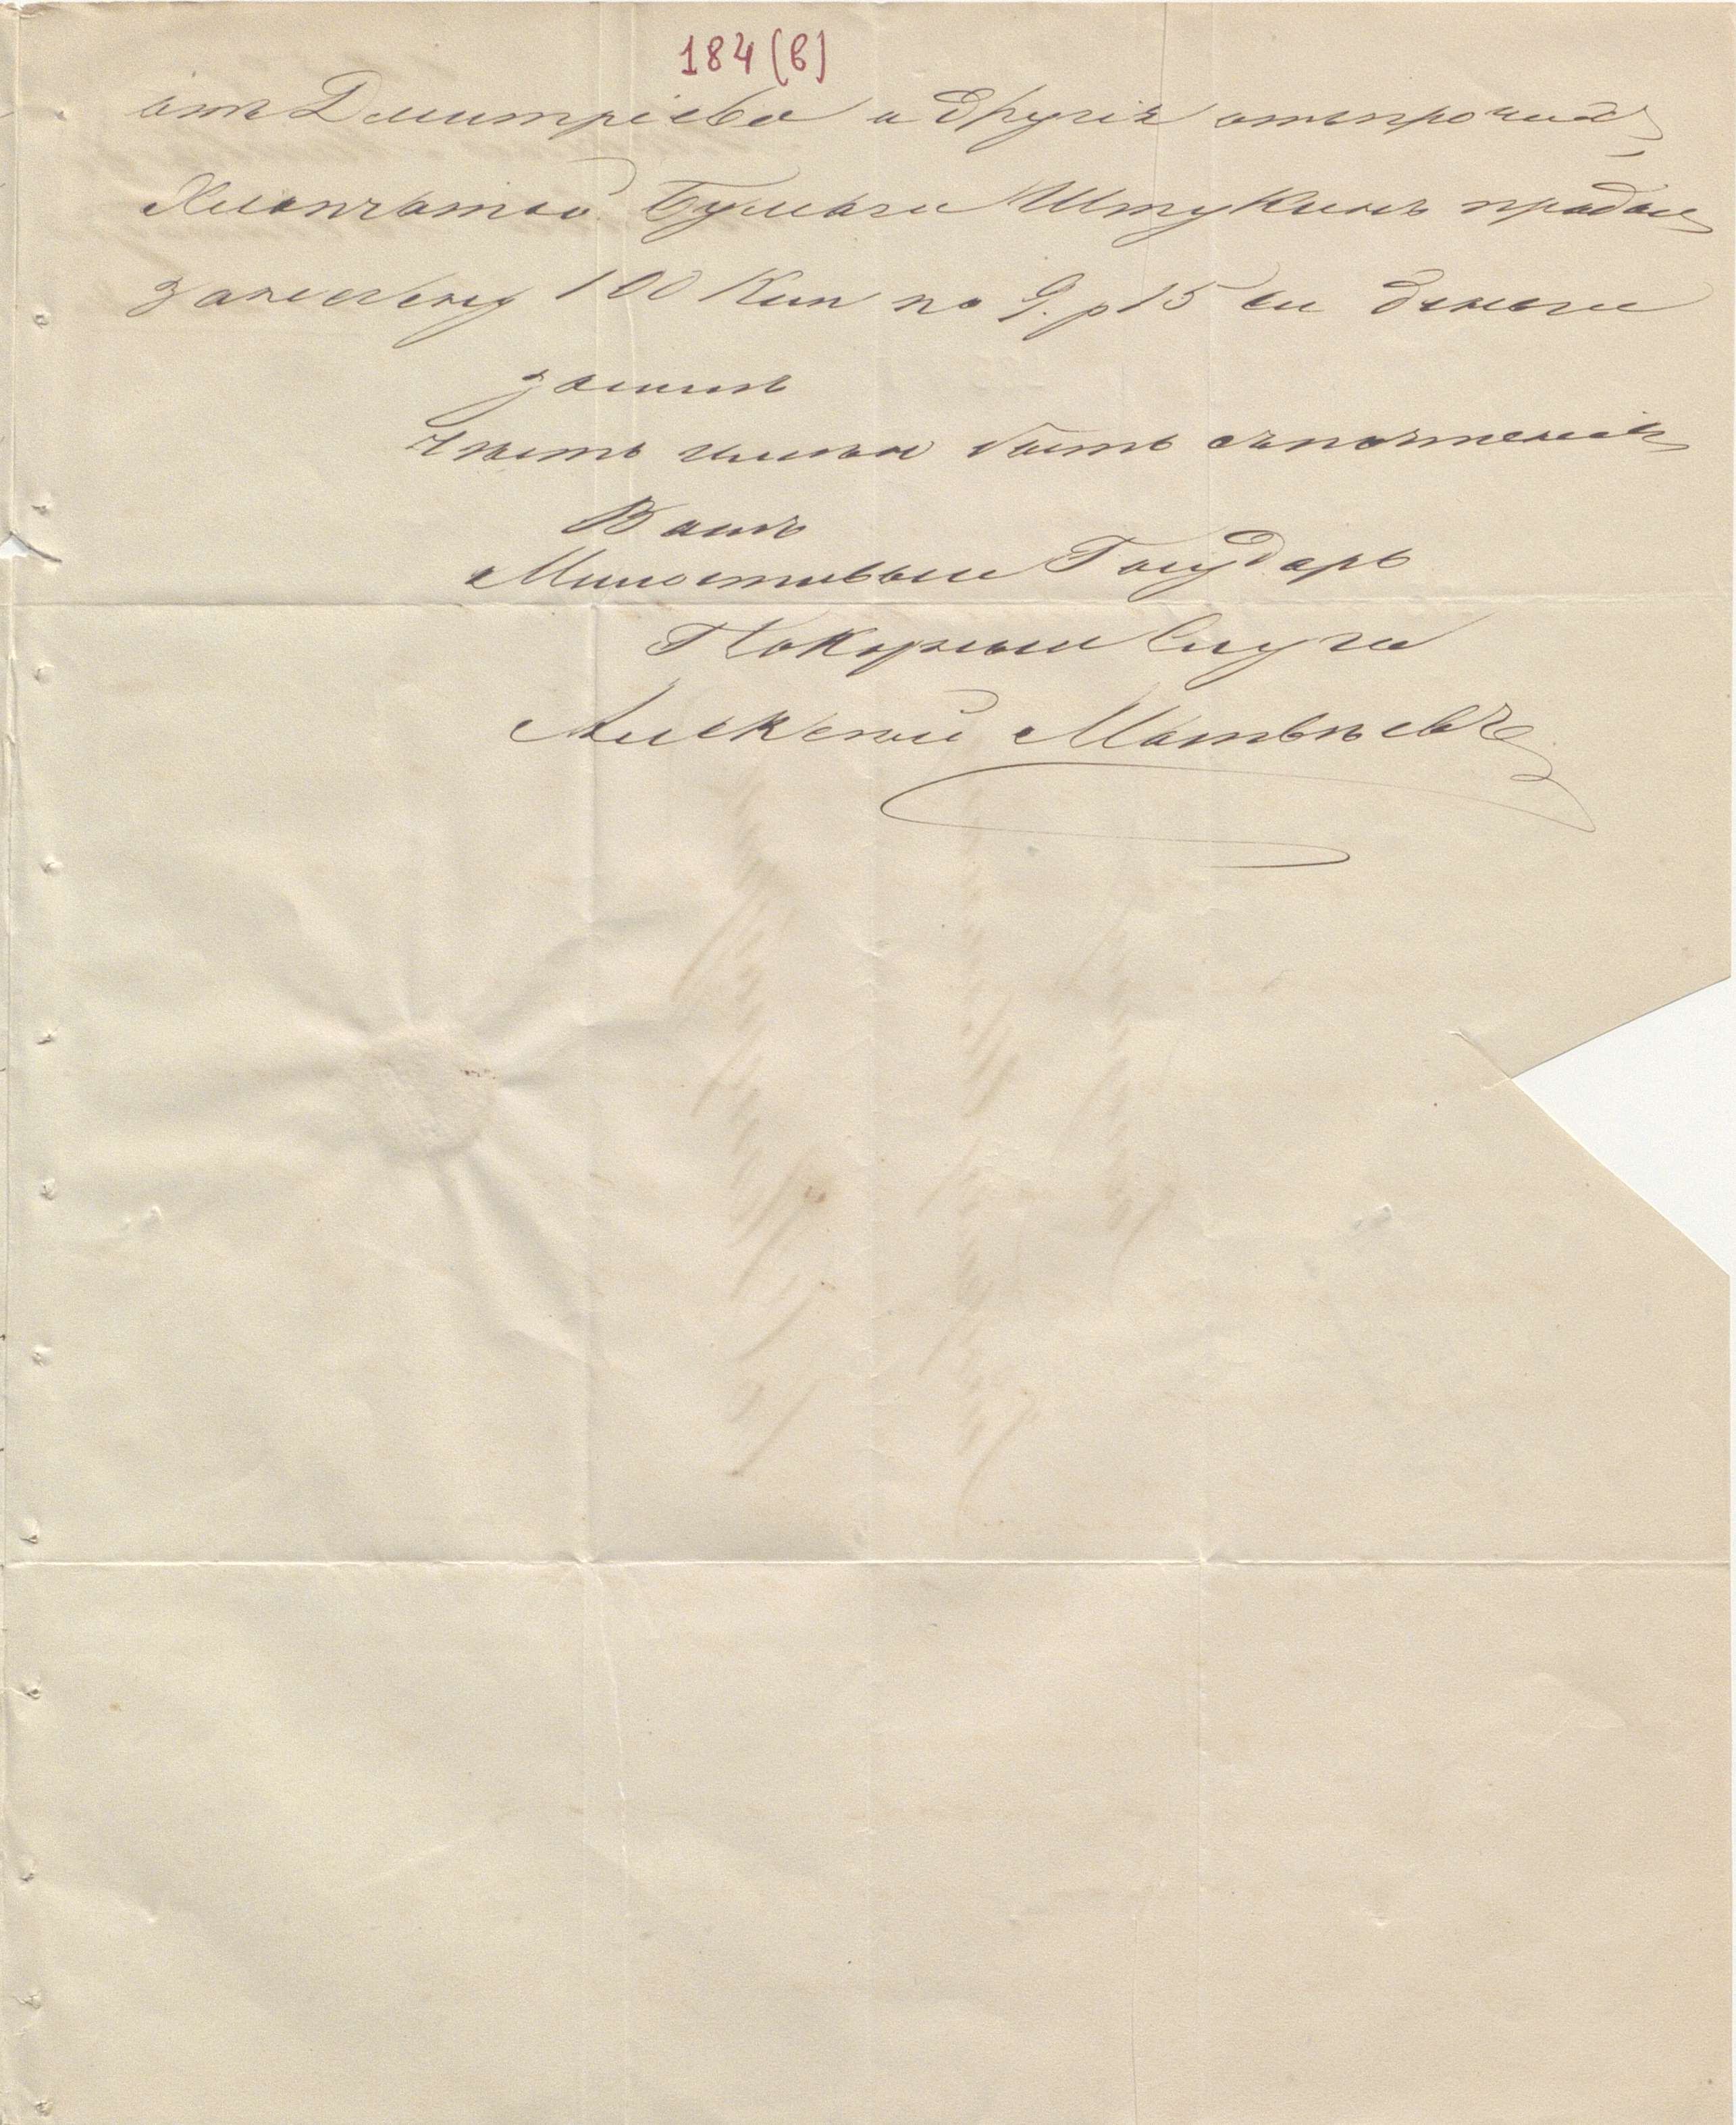 184(в)
отъ Дмитріева и другія отъпрочихъ
Хлопчатой Бумаги Штукинъ продал
100 Кип по 9. р 15 деньги
Честь имею быть съпочтениемъ
Вашъ
Милостивыи Государь
Покорныи Слуга
Алексей Матвѣевъ